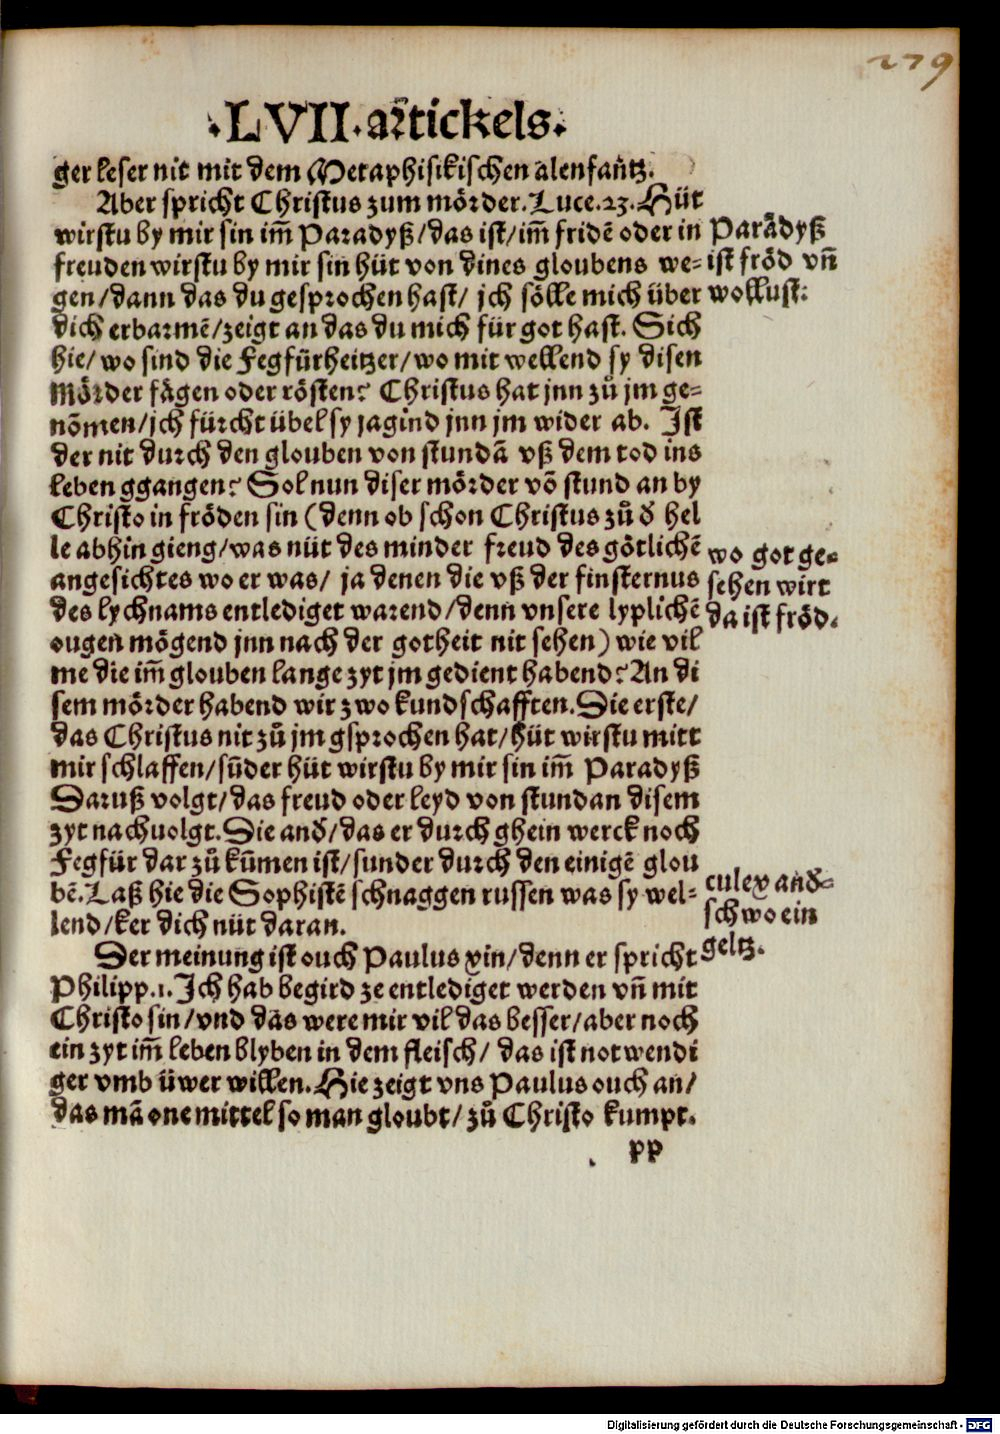 279
.LVII.artickels.
ger leser nit mit dem Metaphisikischen alenfantz.
Aber spricht Christus zum mörder. Luce.23. Hüt
wirstu by mir sin im̃ Paradyß/das ist/im̃ fridẽ oder in
freuden wirstu by mir sin hüt von dines gloubens we-
gen/dann das du gesprochen hast/ jch sölle mich über
dich erbarmẽ/zeigt an das du mich für got hast. Sich
hie/wo sind die Fegfürheitzer/wo mit wellend sy disen
Mörder fägen oder rösten? Christus hat jnn zů jm ge-
nõmen/jch fürcht übel sy jagind jnn jm wider ab. Ist
der nit durch den glouben von stundã vß dem tod ins
leben ggangen? Sol nun diser mörder võ stund an by
Christo in fröden sin (denn ob schon Christus zů d̕ hel
le abhin gieng/was nüt des minder freud des götlichẽ
angesichtes wo er was/ ja denen die vß der finsternus
des lychnams entlediget warend/denn vnsere lyplichẽ
ougen mögend jnn nach der gotheit nit sehen) wie vil
me die im̃ glouben lange zyt jm gedient habend? An di
sem mörder habend wir zwo kundschafften. Die erste/
das Christus nit zů jm gsprochen hat/hüt wirstu mitt
mir schlaffen/sũder hüt wirstu by mir sin im̃ Paradyß
Daruß volgt/das freud oder leyd von stundan disem
zyt nachuolgt. Die and̕/das er durch ghein werck noch
Fegfür dar zů kũmen ist/sunder durch den einigẽ glou
bẽ. Laß hie die Sophistẽ schnaggen russen was sy wel-
lend/ker dich nüt daran.
Der meinung ist ouch Paulus xin/denn er spricht
Philipp.1. Ich hab begird ze entlediget werden vñ mit
Christo sin/vnd das were mir vil das besser/aber noch
ein zyt im̃ leben blyben in dem fleisch/ das ist notwendi
ger vmb üwer willen. Hie zeigt vns Paulus ouch an/
das mã one mittel so man gloubt/zů Christo kumpt.
pp
Paradyß
ist fröd vñ
wollust.
wo got ge-
sehen wirt
da ist fröd.
culex and̕-
schwo ein
geltz.
Digitalisierung gefördert durch die Deutsche Forschungsgemeinschaft - DFG